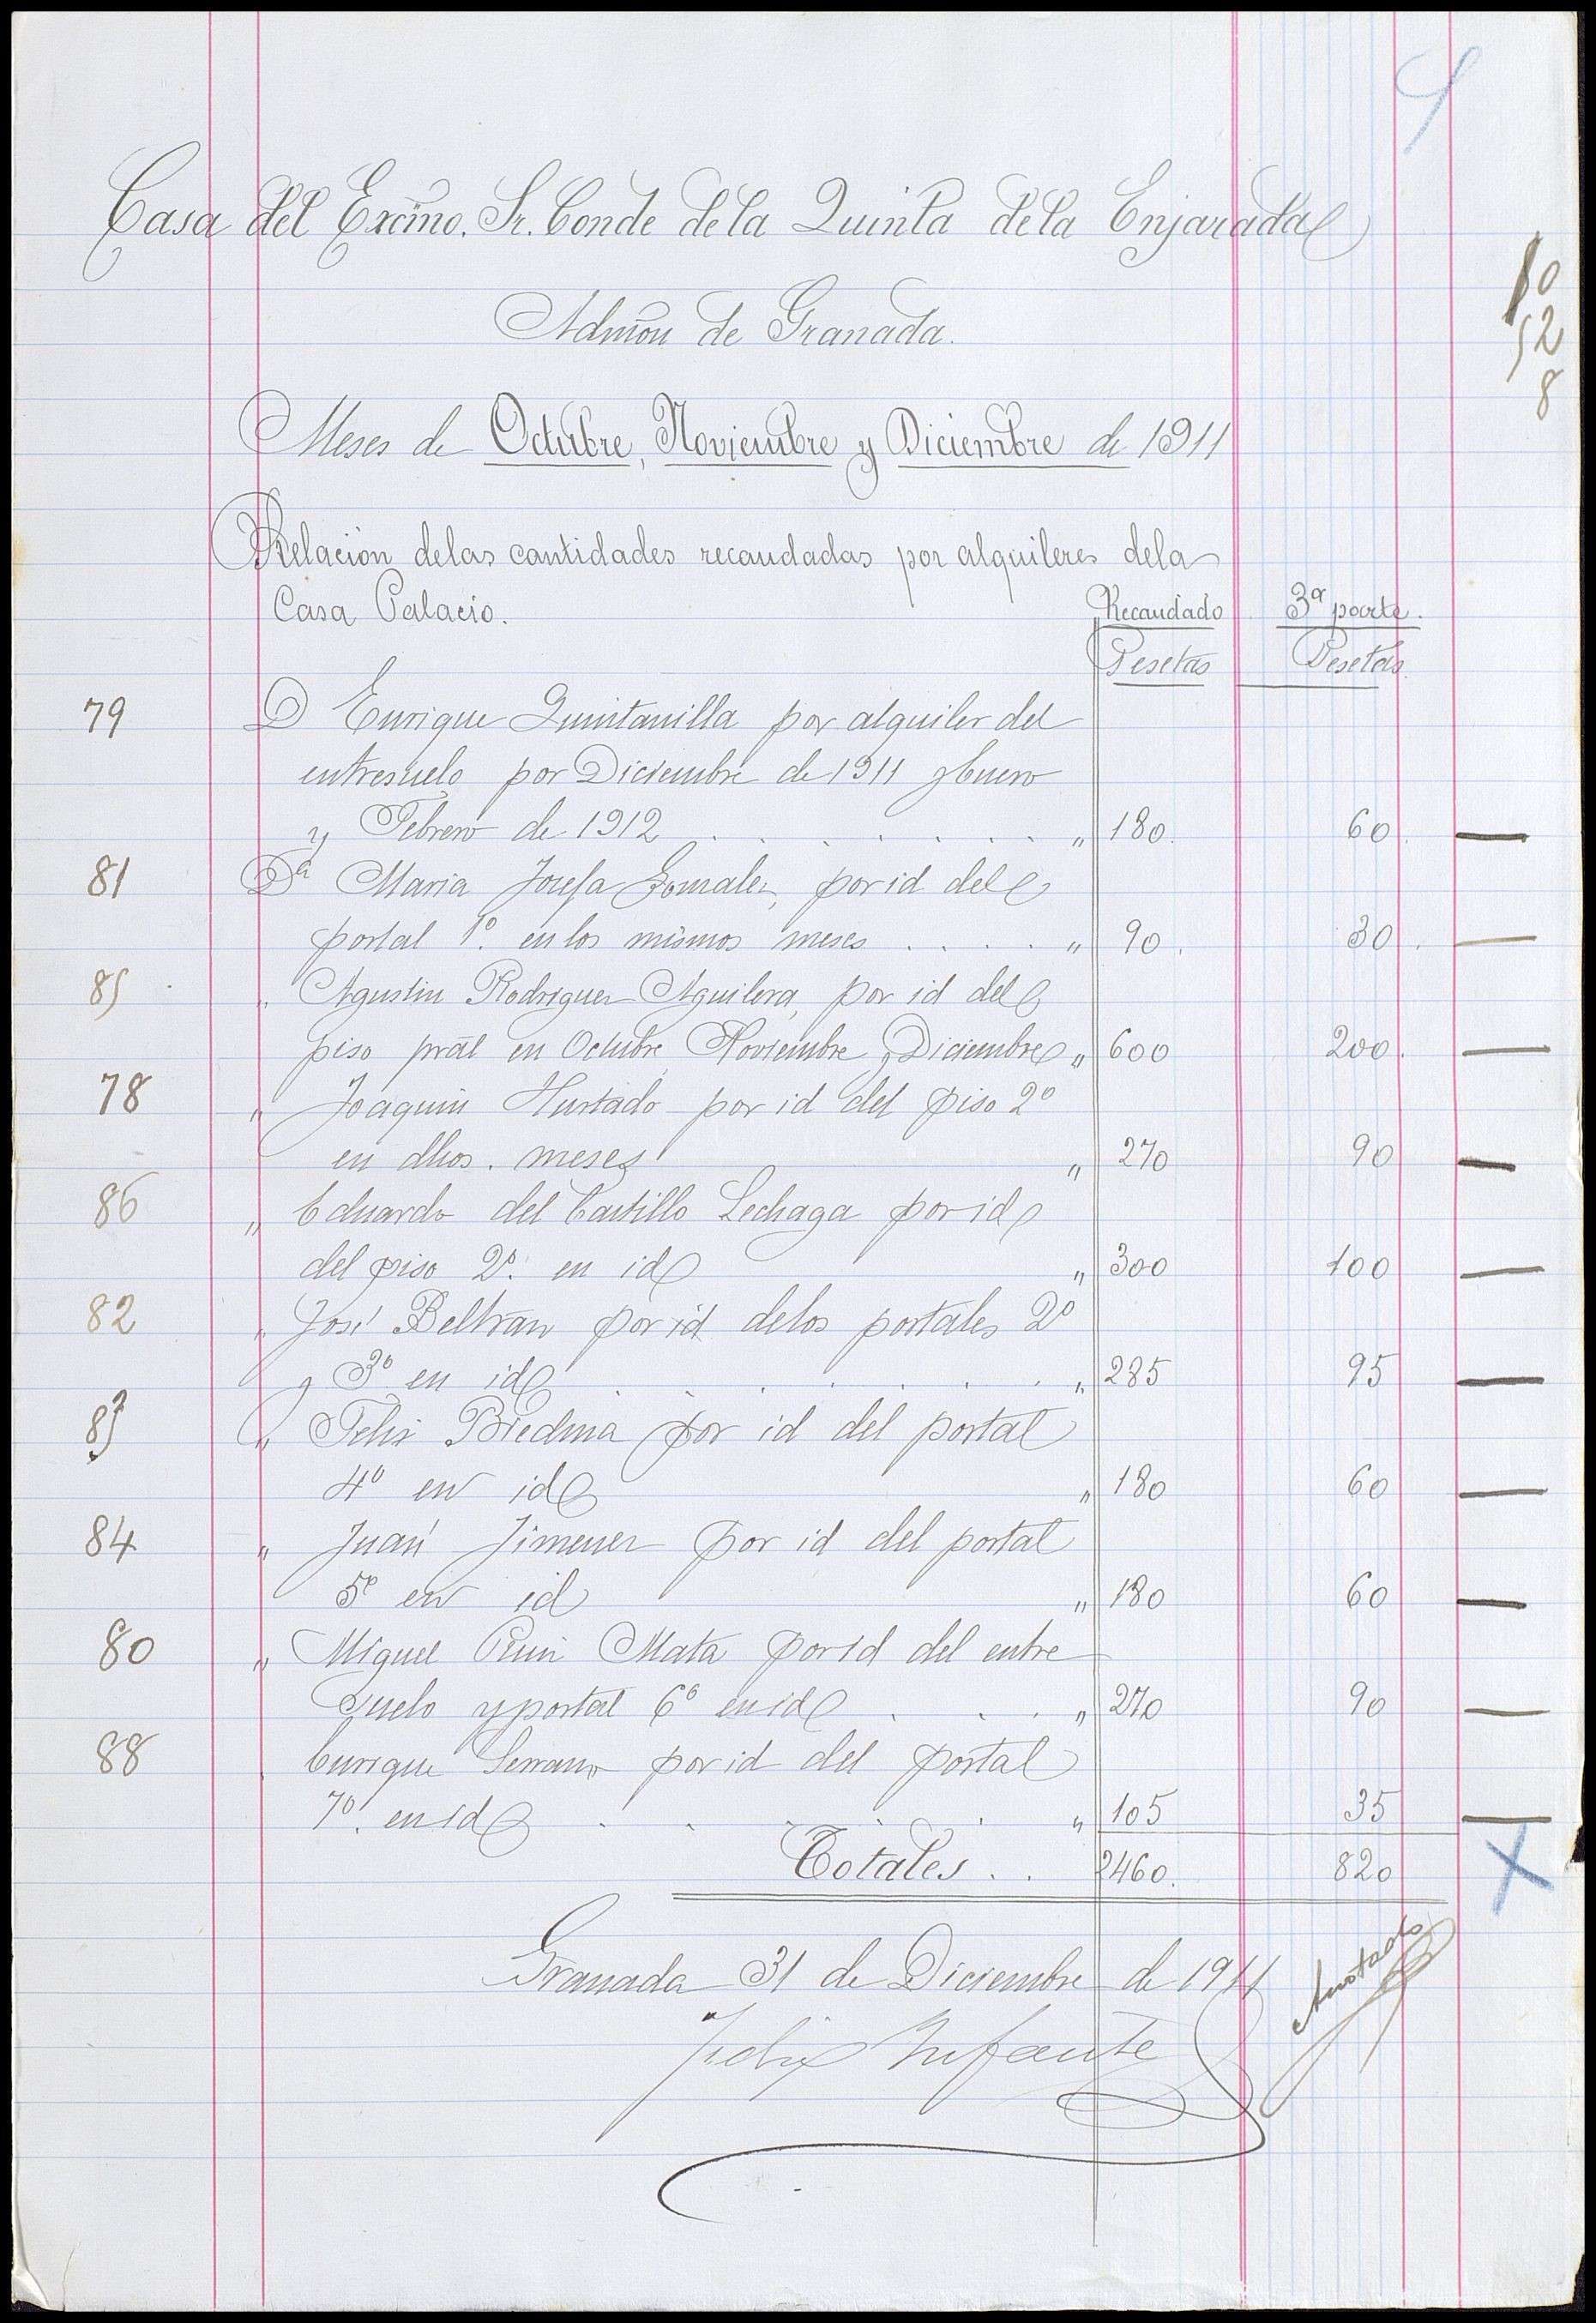 Casa del Excmo. Sr. Conde de la Quinta de la Enjarada
Admon de Granada.
Meses de Octubre, Noviembre y Diciembre de 1911
Relación de las cantidades recaudadas por alquileres de la
Casa Palacio. Recaudado 3ª parte.
Pesetas Pesetas.
79 D Enrique Quintanilla por alquiler del
entresuelo por Diciembre de 1911 y Enero
y Febrero de 1912 . . . . . . . " 180. 60.
81 Dª Maria Josefa Gonzalez, por id del
portal 1º. en los mismos meses . . . . " 90. 30.
85 " Agustin Rodriguez Aguilera, por id del
piso pral en Octubre Noviembre y Diciembre " 600 200.
78 " Joaquin Hurtado por id del piso 2º
en dhos. meses " 270 90
86 " Eduardo del Castillo Lechaga por id
del piso 2º. en id " 300 100
82 " José Beltrán por id de los portales 2º
y 3º en id . . . . . . . " 285 95
" Felix Biedma por id del portal
4º en id " 180 60
84 " Juan Jimenez por id del portal
5º en id " 180 60
80 " Miguel Mata por id del entre
suelo y portal 6º en id . . . " 270 90
88 " Enrique Serrano por id del portal
7º. en id . . . . . " 105 35
Totales . . 2460. 820
Granada 31 de Diciembre de 1911
Anotado
Felix Infante